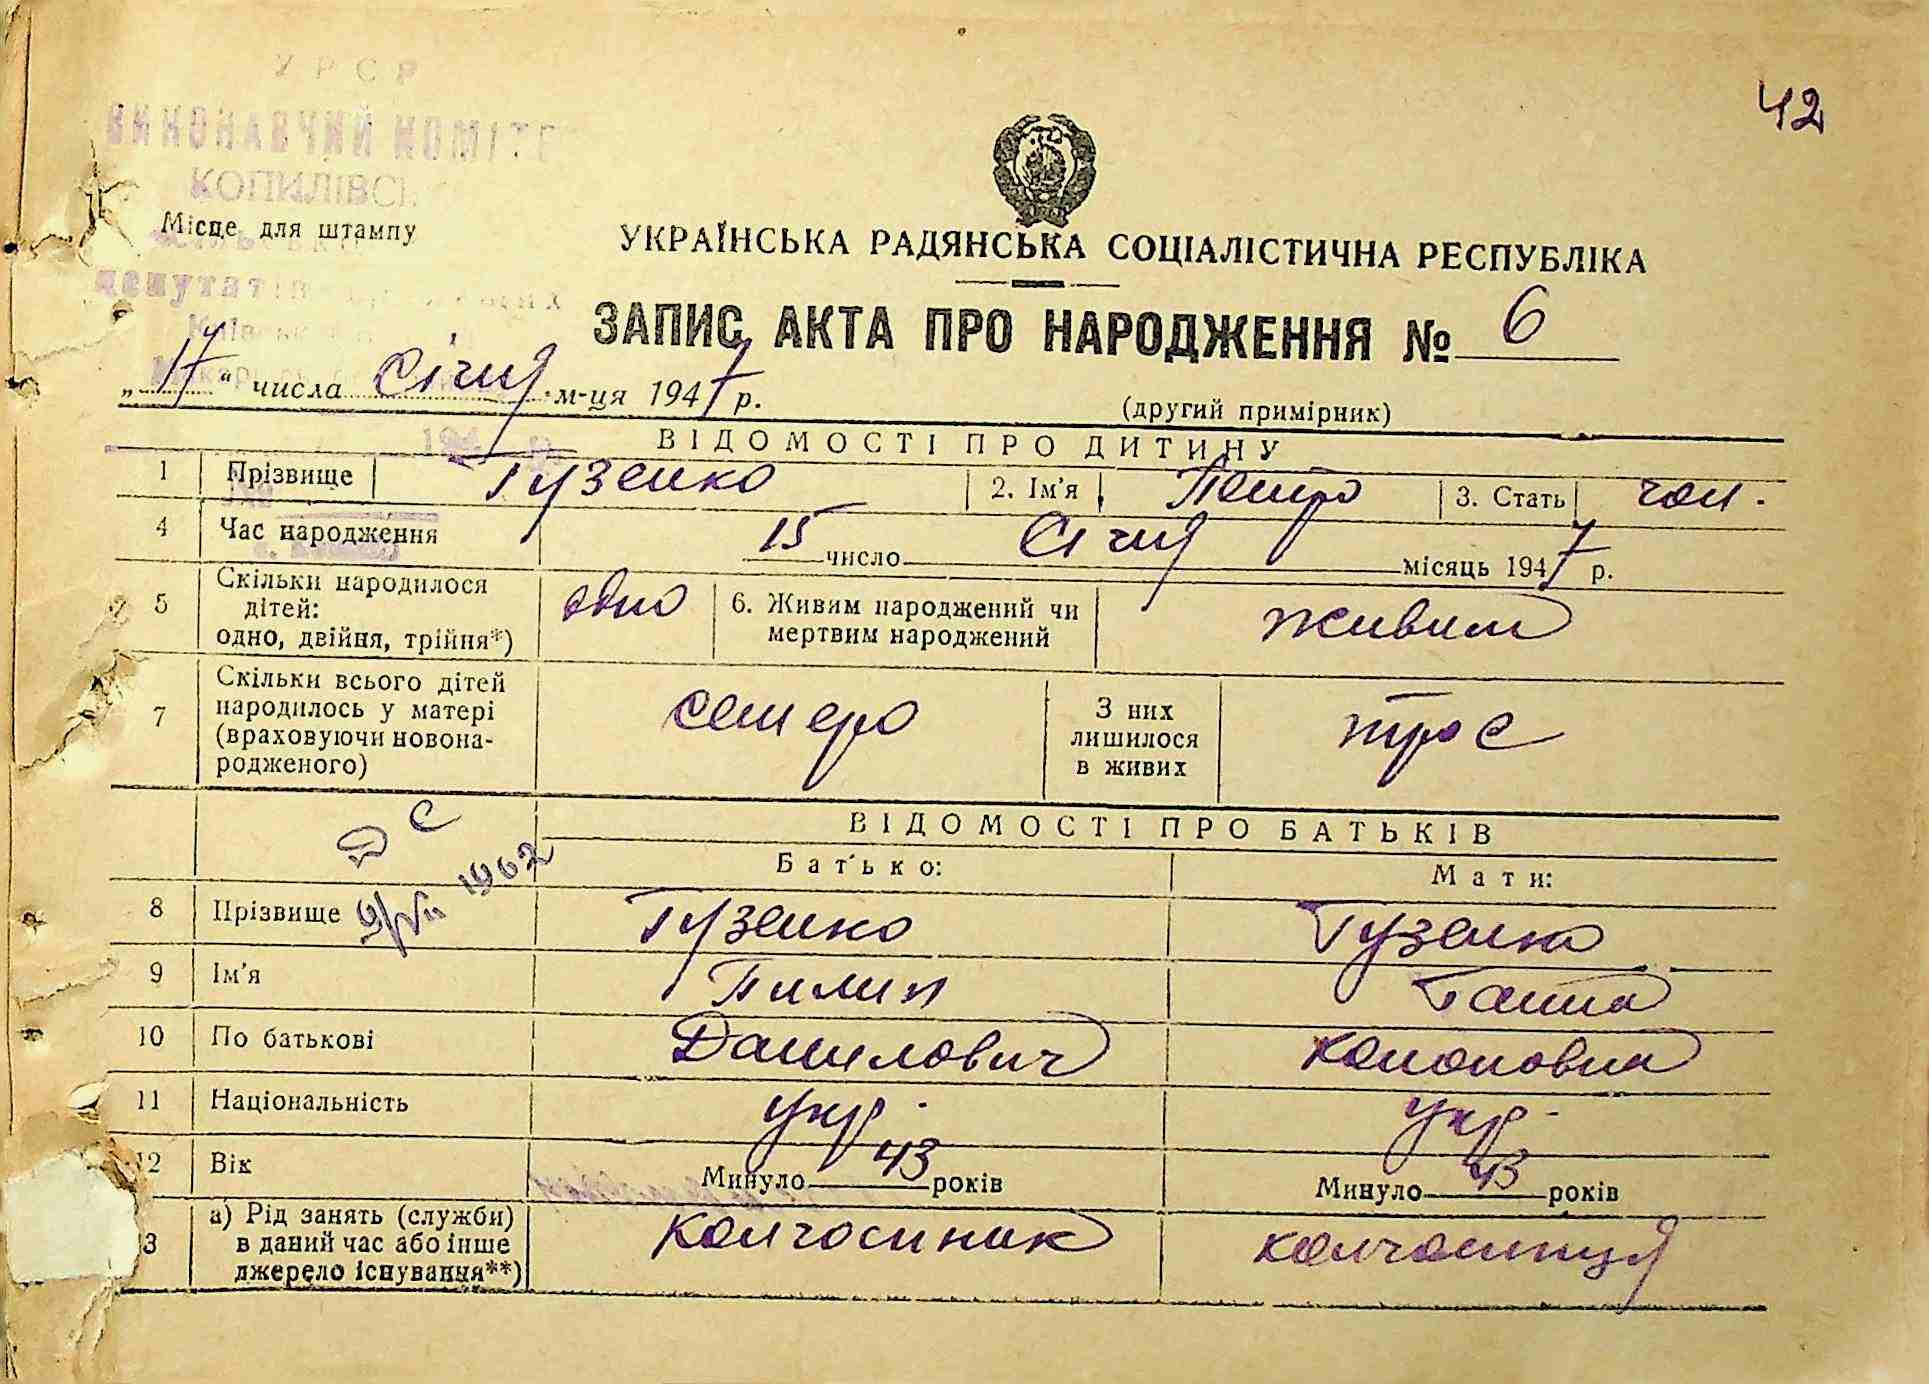 42
УРСР
ВИКОНАВЧИЙ КОМІТЕ
КОПИЛІВСЬ
Місце для штампу
депутатів
УКРАЇНСЬКА РАДЯНСЬКА СОЦІАЛІСТИЧНА РЕСПУБЛІКА
ЗАПИС АКТА ПРО НАРОДЖЕННЯ № 6
„17“ числа Січня м-ця 1947 р.
(другий примірник)
ВІДОМОСТІ ПРО ДИТИНУ
1 Прізвище Гузенко 2. Ім'я Петро 3. Стать чол.
4 Час народження 15 число Січня місяць 1947 р.
5 Скільки народилося дітей: одно, двійня, трійня*) одно 6. Живим народжений чи мертвим народжений живим
7 Скільки всього дітей народилось у матері (враховуючи новонародженого) семеро З них лишилося в живих троє
ВІДОМОСТІ ПРО БАТЬКІВ
Батько: Мати:
8 Прізвище Гузенко Гузенко
9 Ім'я Пилип Ганна
10 По батькові Данилович Кононовна
11 Національність укр. укр.
12 Вік Минуло 43 років Минуло 43 років
3 а) Рід занять (служби) в даний час або інше джерело існування**) Колгоспник колгоспниця